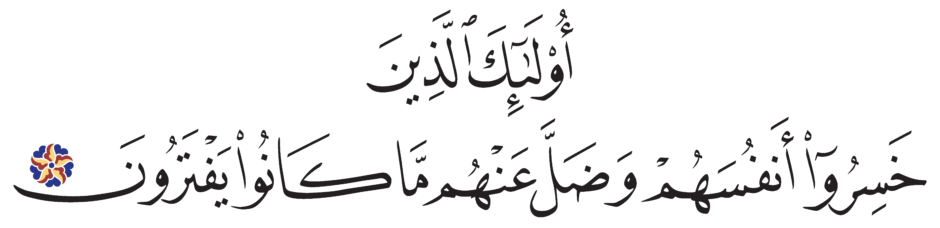 أُو۟لَـٰٓئِكَ ٱلَّذِينَ
خَسِرُوٓا۟ أَنفُسَهُمْ وَضَلَّ عَنْهُم مَّا كَانُوا۟ يَفْتَرُونَ